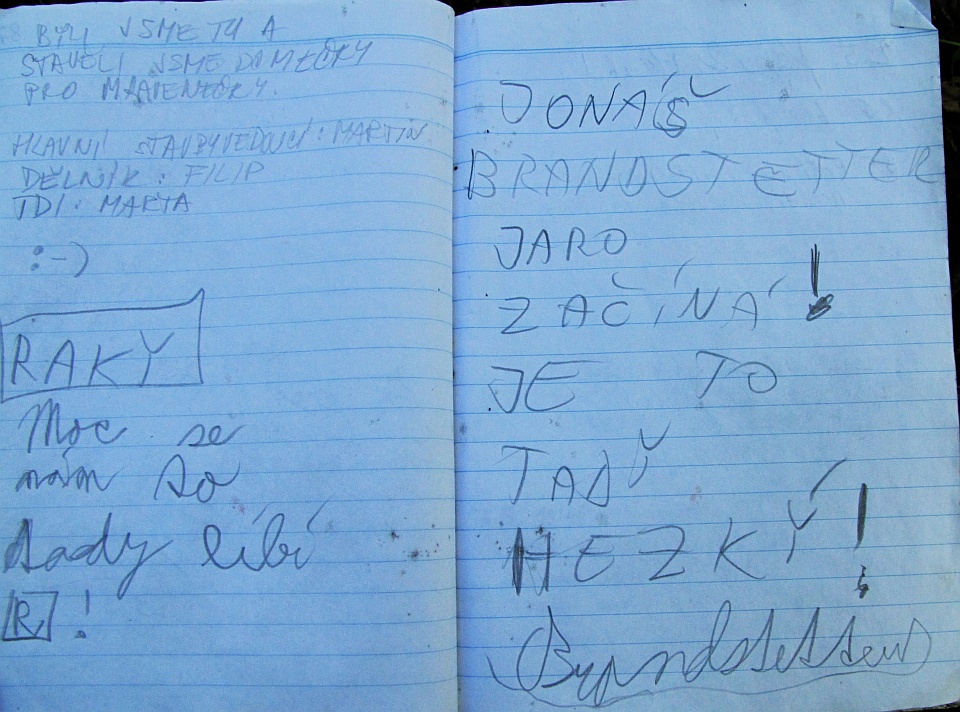 BYLI JSME TU A
STAVĚLI JSME DOMEČKY
PRO MRAVENEČKY.
HLAVNÍ STAVBYVEDOUCÍ: MARTIN
DĚLNÍK: FILIP
TDI: MARTA
:-)
RAKY
Moc se
nám to
tady líbí
R !
JONÁŠ
BRANDSTETTER
JARO
ZAČÍNÁ!
JE TO
TADY
HEZKÝ!